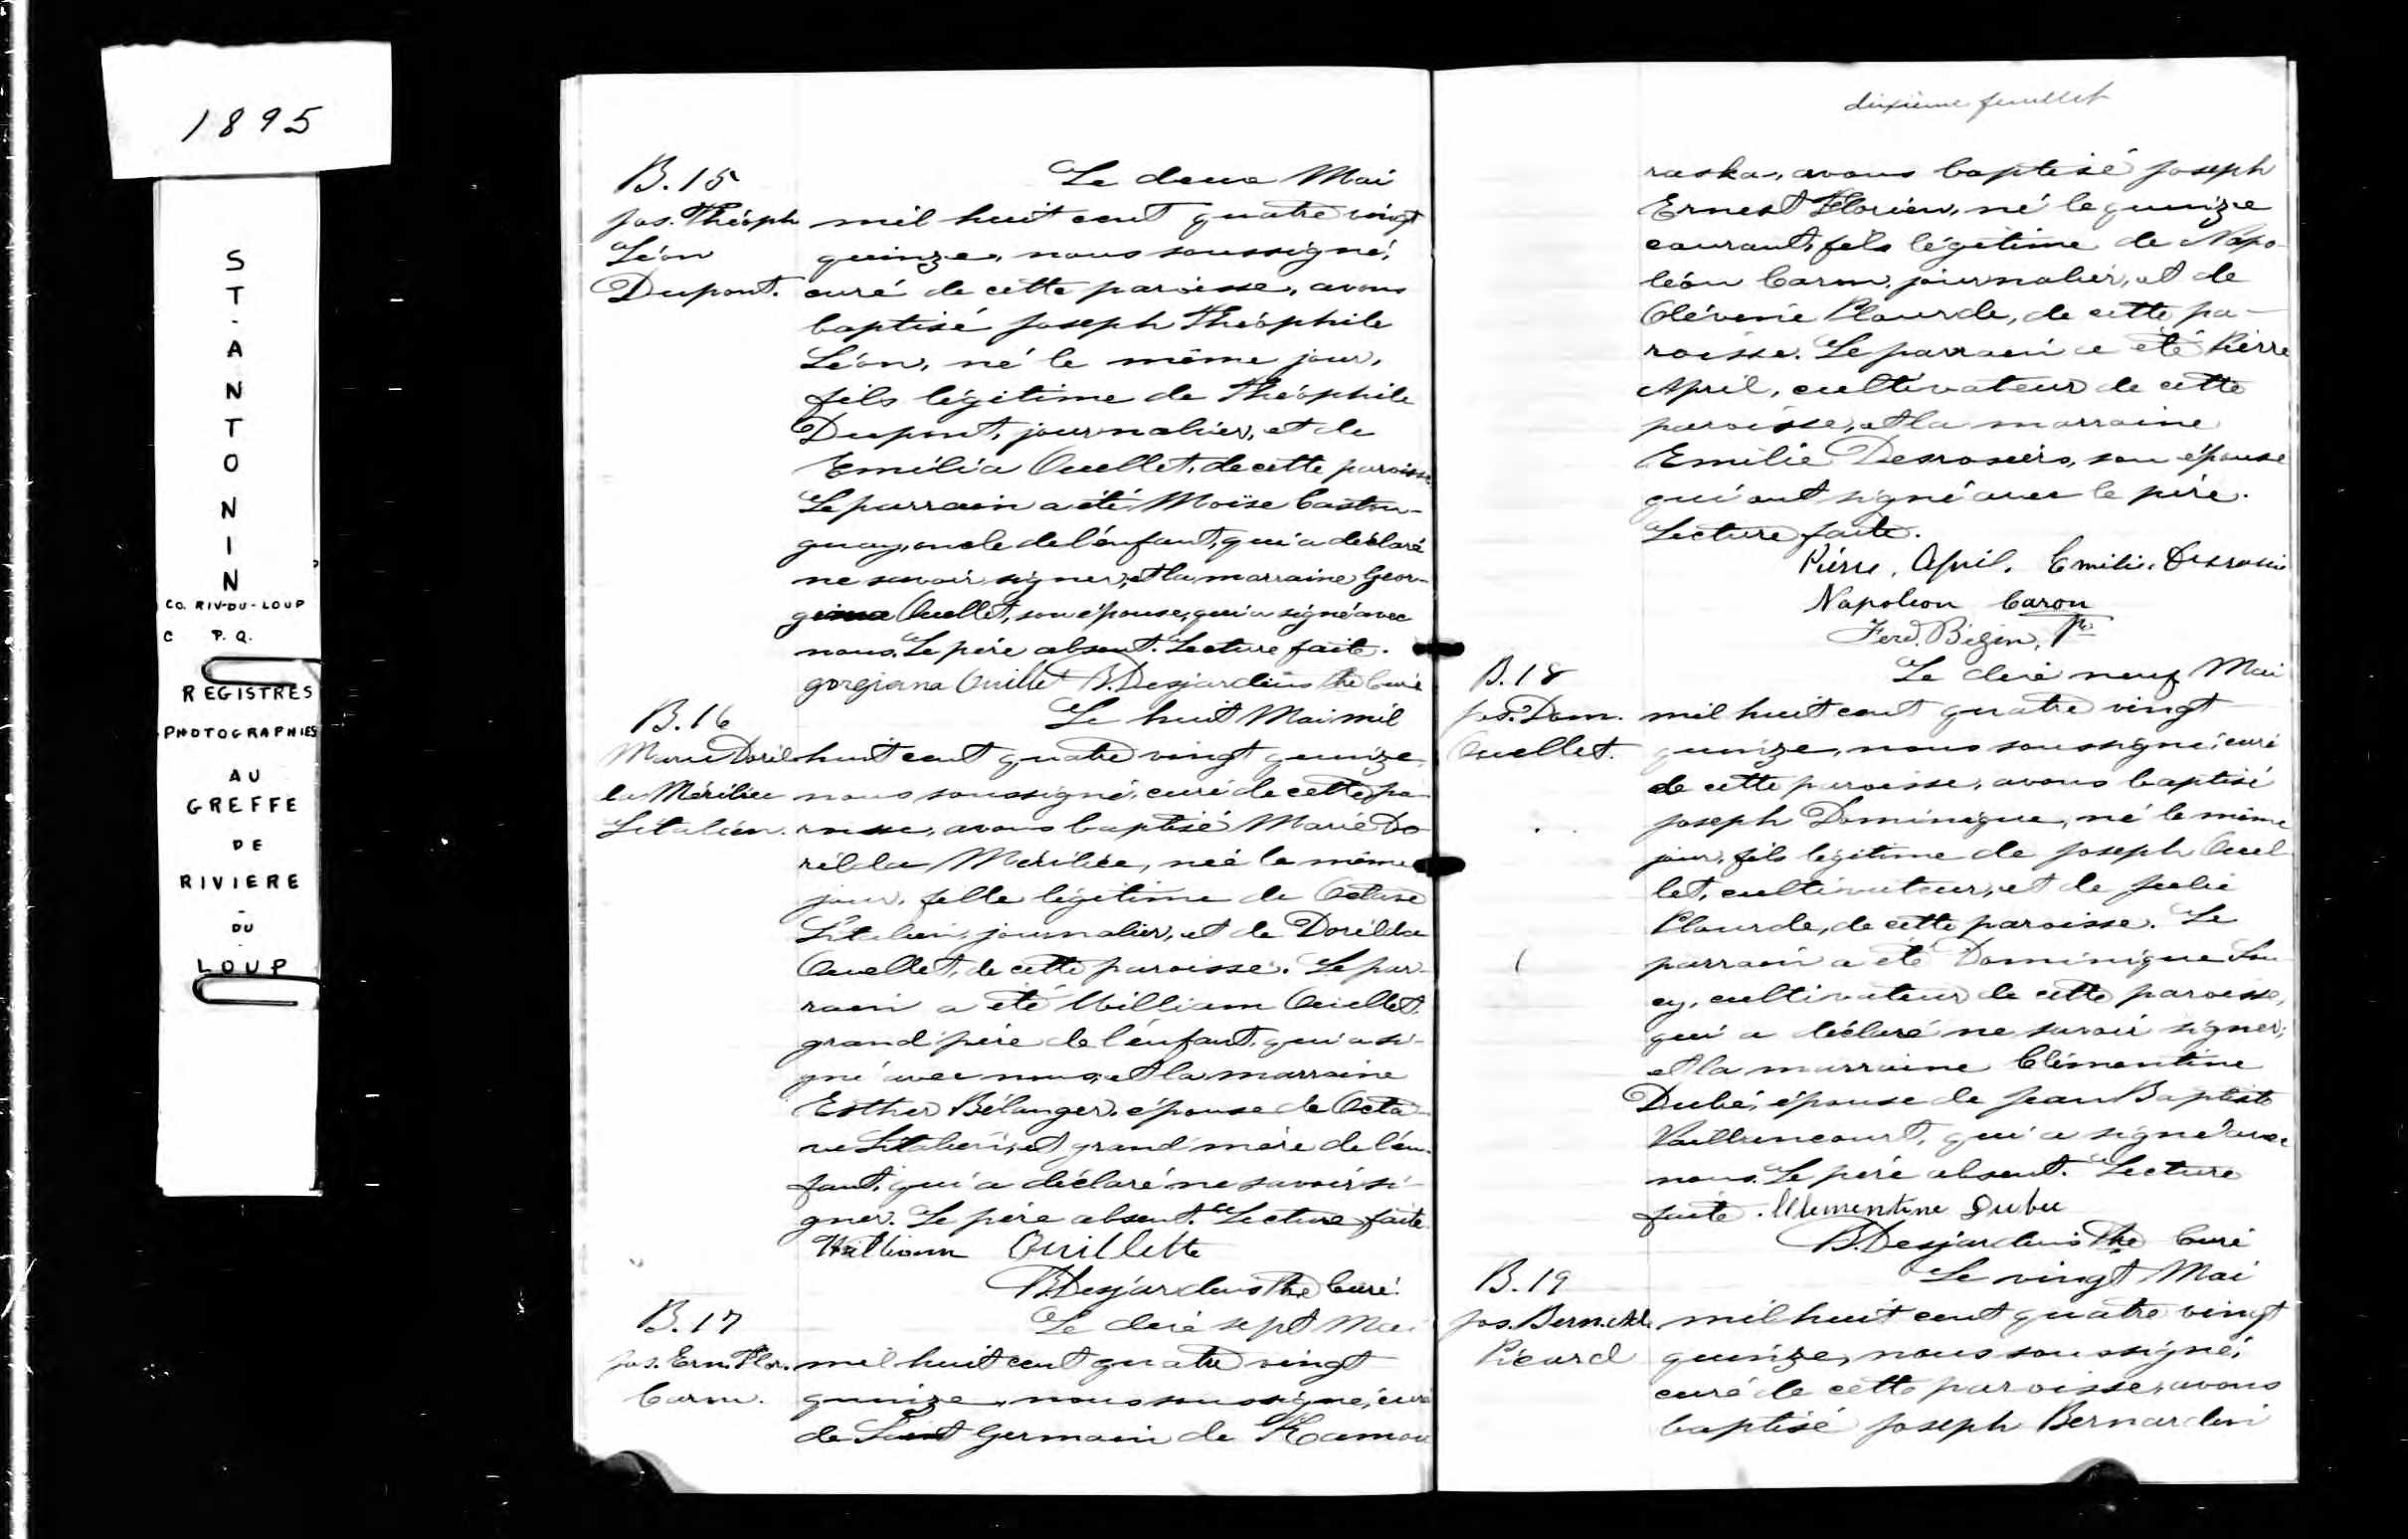 1895
ST-ANTONIN
CO. RIV-DU-LOUP
C P.Q.
REGISTRES
PHOTOGRAPHIES
AU
GREFFE
DE
RIVIERE
-
DU
LOUP
B.15
Jos. Théoph
Léon
Dupont.
Le deux Mai
mil huit cent quatre vingt
quinze, nous soussigné,
curé de cette paroisse, avons
baptisé Joseph Théophile
Léon, né le même jour,
fils légitime de Théophile
Dupont, journalier, et de
Emilia Ouellet, de cette paroisse.
Le parrain a été Moïse Caston-
guay, oncle de l'enfant, qui a déclaré
ne savoir signer, et la marraine Geor-
giana Ouellet, son épouse, qui a signé avec
nous. Le père absent. Lecture faite.
gorgiana Ouillet B. Desjardins Ptre Curé
B.16
Marie Doril
la Mérilée
Litalien.
Le huit Mai mil
huit cent quatre vingt quinze
nous soussigné, curé de cette pa
roisse, avons baptisé Marie Do
rilla Mérilée, née le même
jour, fille légitime de Octave
Litalien, journalier, et de Dorilda
Ouellet, de cette paroisse. Le par-
rain a été William Ouellet
grand'père de l'enfant, qui a si-
gné avec nous, et la marraine
Esther Bélanger, épouse de Octa-
ve Litalien, et grand'mère de l'en-
fant, qui a déclaré ne savoir si-
gner. Le père absent. Lecture faite
William Ouillette
B. Desjardins Ptre Curé.
B.17
Jos. Ern. Flor.
Caron.
Le dix sept Mai
mil huit cent quatre vingt
quinze, nous soussigné, curé
de Saint Germain de Kamou
dixième feuillet
raska, avons baptisé Joseph
Ernest Florien, né le quinze
courant, fils légitime de Napo-
léon Caron, journalier, et de
Clévenie Plourde, de cette pa-
roisse. Le parrain a été Pierre
April, cultivateur de cette
paroisse, et la marraine
Emilie Desrosiers, son épouse
qui ont signé avec le père.
Lecture faite.
Pierre. April. Emilie. Desrosie
Napoleon Caron
Ferd. Bégin, Ptre
B.18
Jos. Dom.
Ouellet.
Le dix neuf Mai
mil huit cent quatre vingt
quinze, nous soussigné, curé
de cette paroisse, avons baptisé
Joseph Dominique, né le même
jour, fils légitime de Joseph Ouel
let, cultivateur, et de Julie
Plourde, de cette paroisse. Le
parrain a été Dominique Sou
cy, cultivateur de cette paroisse,
qui a déclaré ne savoir signer;
et la marraine Clémentine
Dubé, épouse de Jean Baptiste
Vaillancourt, qui a signé avec
nous. Le père absent. Lecture
faite. Clementine Dubee
B. Desjardins Ptre Curé
B.19
Jos. Bern.
Picard
Le vingt Mai
mil huit cent quatre vingt
quinze, nous soussigné,
curé de cette paroisse, avons
baptisé Joseph Bernardin